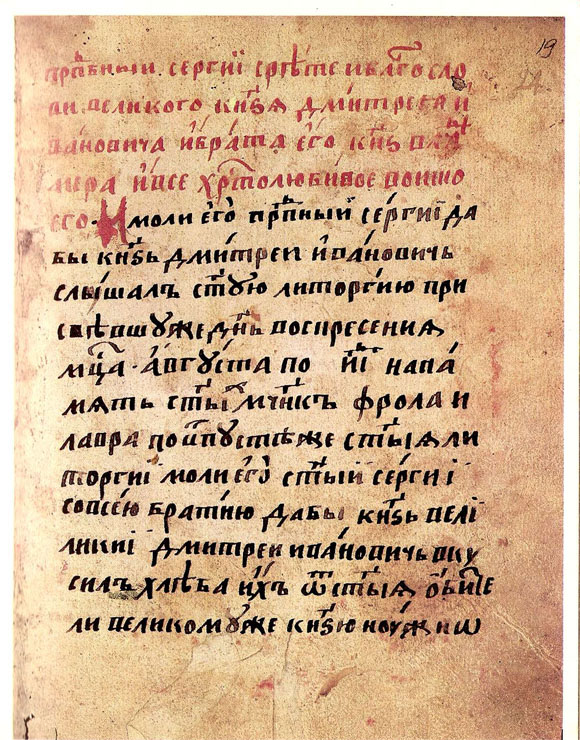 19
24
прпⷣбныи сергиї срѣте и блгⷭосло
ви великого кн҃ѕѧ дмитреꙗ и
вановича и҆ брата е҆го кн҃ѕ влⷣа
мера и҆ все хрⷭтолюбивое воиньⷭо
его. И моли е҆го̀ прпⷣбныи сергиї да
бы кн҃ѕь дми́треи и҆ва́новичь
слы́шалъ ст҃ꙋю литоргию при
спѣвшꙋ же дн҃ь воскресения
мцⷭа · а҆вгꙋста по и҃і напа́
мѧть ст҃ыⷯ мчⷩ҃къ фрола и
лавра по ѿпꙋстѣ же ст҃ыѧ ли
торгиї моли е҆го̀ ст҃ыи се́ргиї
со всею братию да бы кн҃ѕь велї
ликиї дмитреи ива́новичь вкꙋ
силъ хлѣба и҆хъ ѿ ст҃ыѧ о҆би́те
ли великомꙋ же кн҃ѕю нꙋ́жно